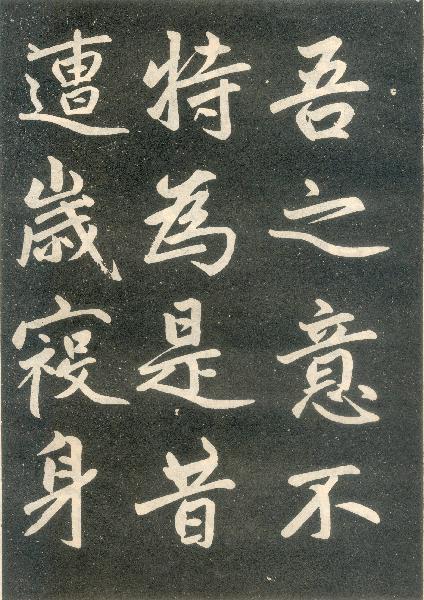 吾之意不
特為是昔
遭歲身